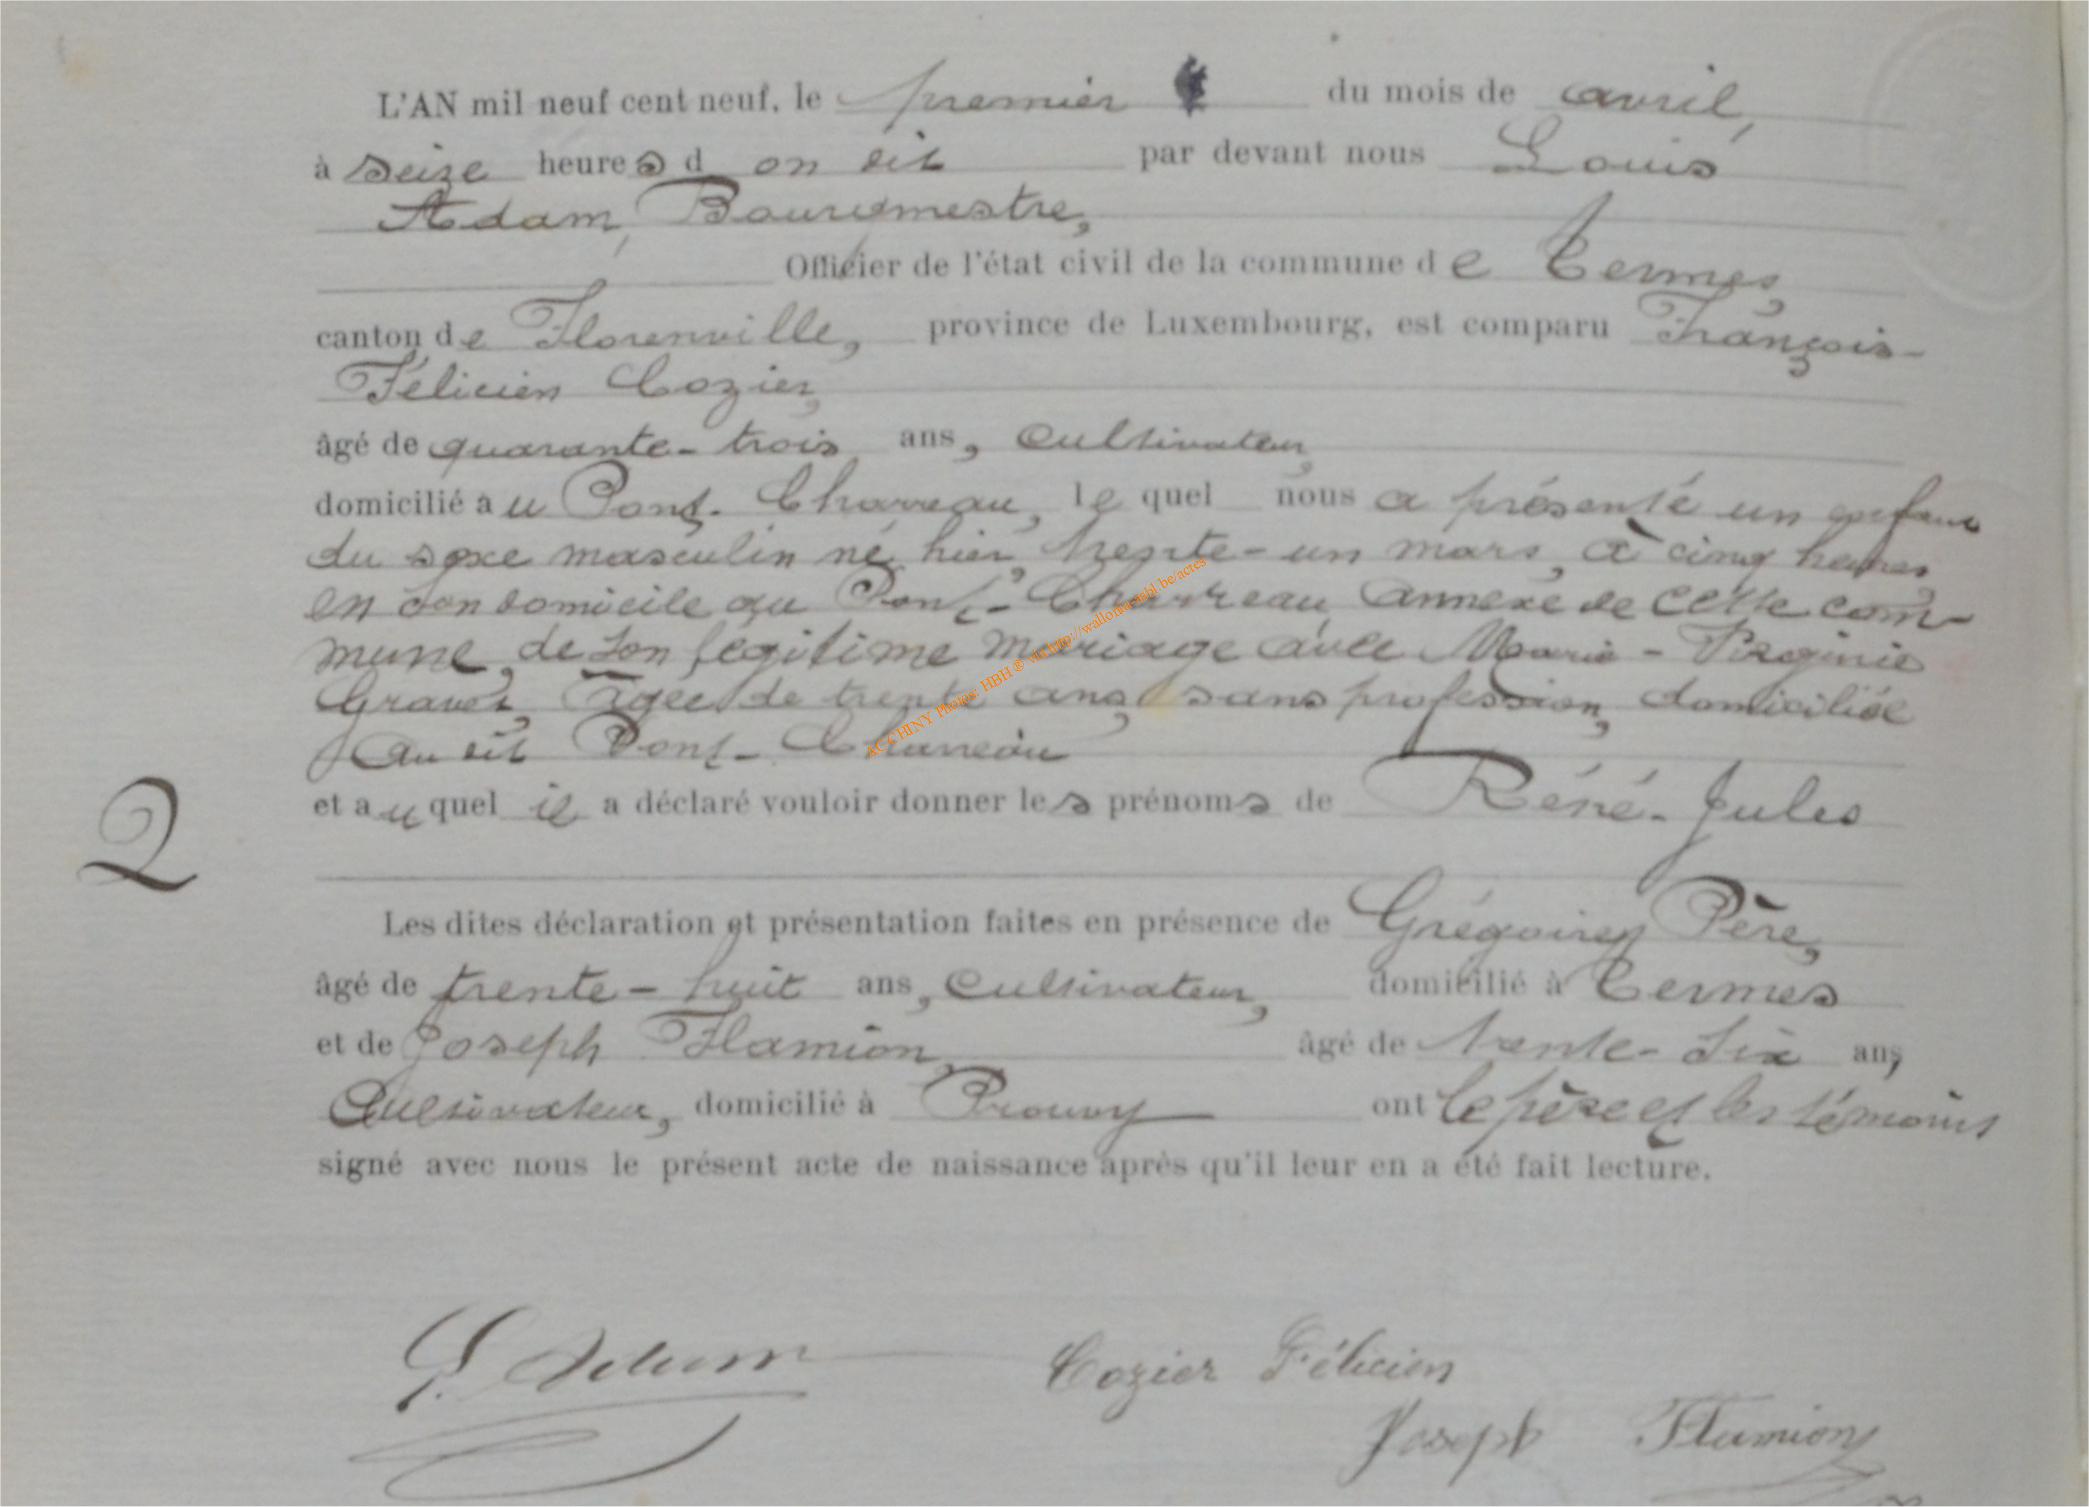 L'AN mil neuf cent neuf, le premier du mois de avril,
à seize heures d on dit par devant nous Louis
Adam, Bourgmestre,
Officier de l'état civil de la commune de Termes,
canton de Florenville, province de Luxembourg, est comparu François-
Félicien Cozier,
âgé de quarante-trois ans, cultivateur,
domicilié au Pont-Charreau, lequel nous a présenté un enfant
du sexe masculin né hier, trente-un mars, à cinq heures
en son domicile au Pont-Charreau, annexe de cette com-
mune, de son légitime mariage avec Marie-Virginie
Gravet, âgée de trente ans, sans profession, domiciliée
au dit Pont-Charreau
et auquel il a déclaré vouloir donner les prénoms de Réné-Jules
2
Les dites déclaration et présentation faites en présence de Grégoire Père,
âgé de trente-huit ans, cultivateur, domicilié à Termes
et de Joseph Flamion, âgé de trente-six ans,
Cultivateur, domicilié à Prouvy ont le père et les témoins
signé avec nous le présent acte de naissance après qu'il leur en a été fait lecture.
L. Adam Cozier Félicien
Joseph Flamion
ACCHINY Photos: HBH © via http://wallonia-asbl.be/actes